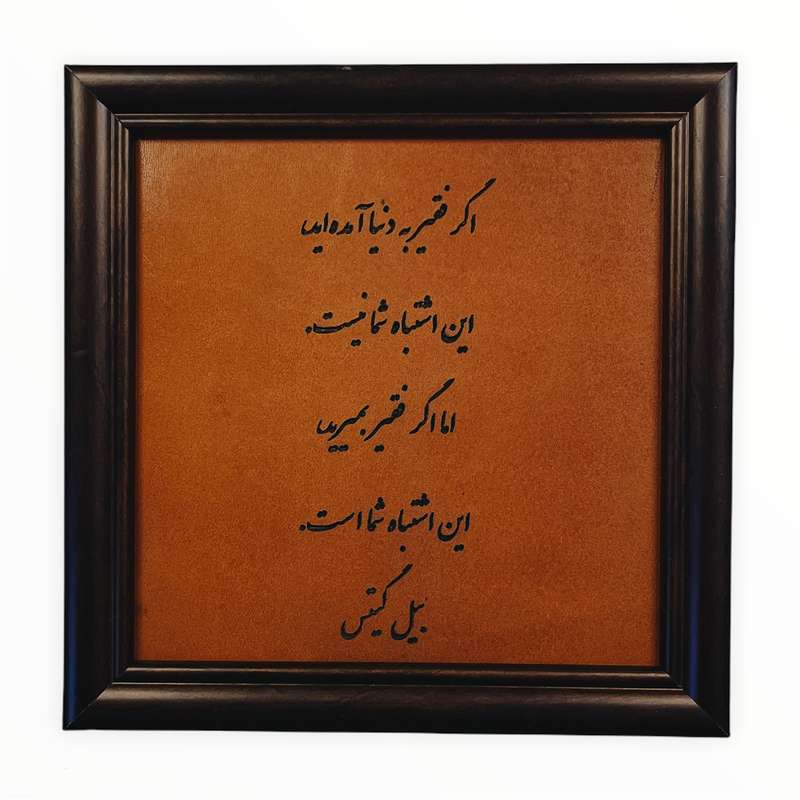 اگر فقیر به دنیا آمده‌اید
این اشتباه شما نیست.
اما اگر فقیر بمیرید
این اشتباه شما است.
بیل گیتس